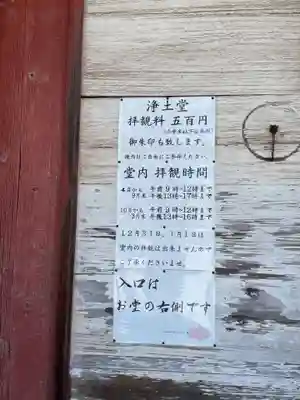 浄土堂
拝観料 五百円
御朱印も致します。
堂内 拝観時間
4月から 午前9時~12時まで
9月末 午後13時~17時まで
10月から 午前9時~12時まで
3月末 午後13時~16時まで
12月31日、1月1日は
堂内の拝観は出来ませんので
ご了承くださいませ。
入口は
お堂の右側です